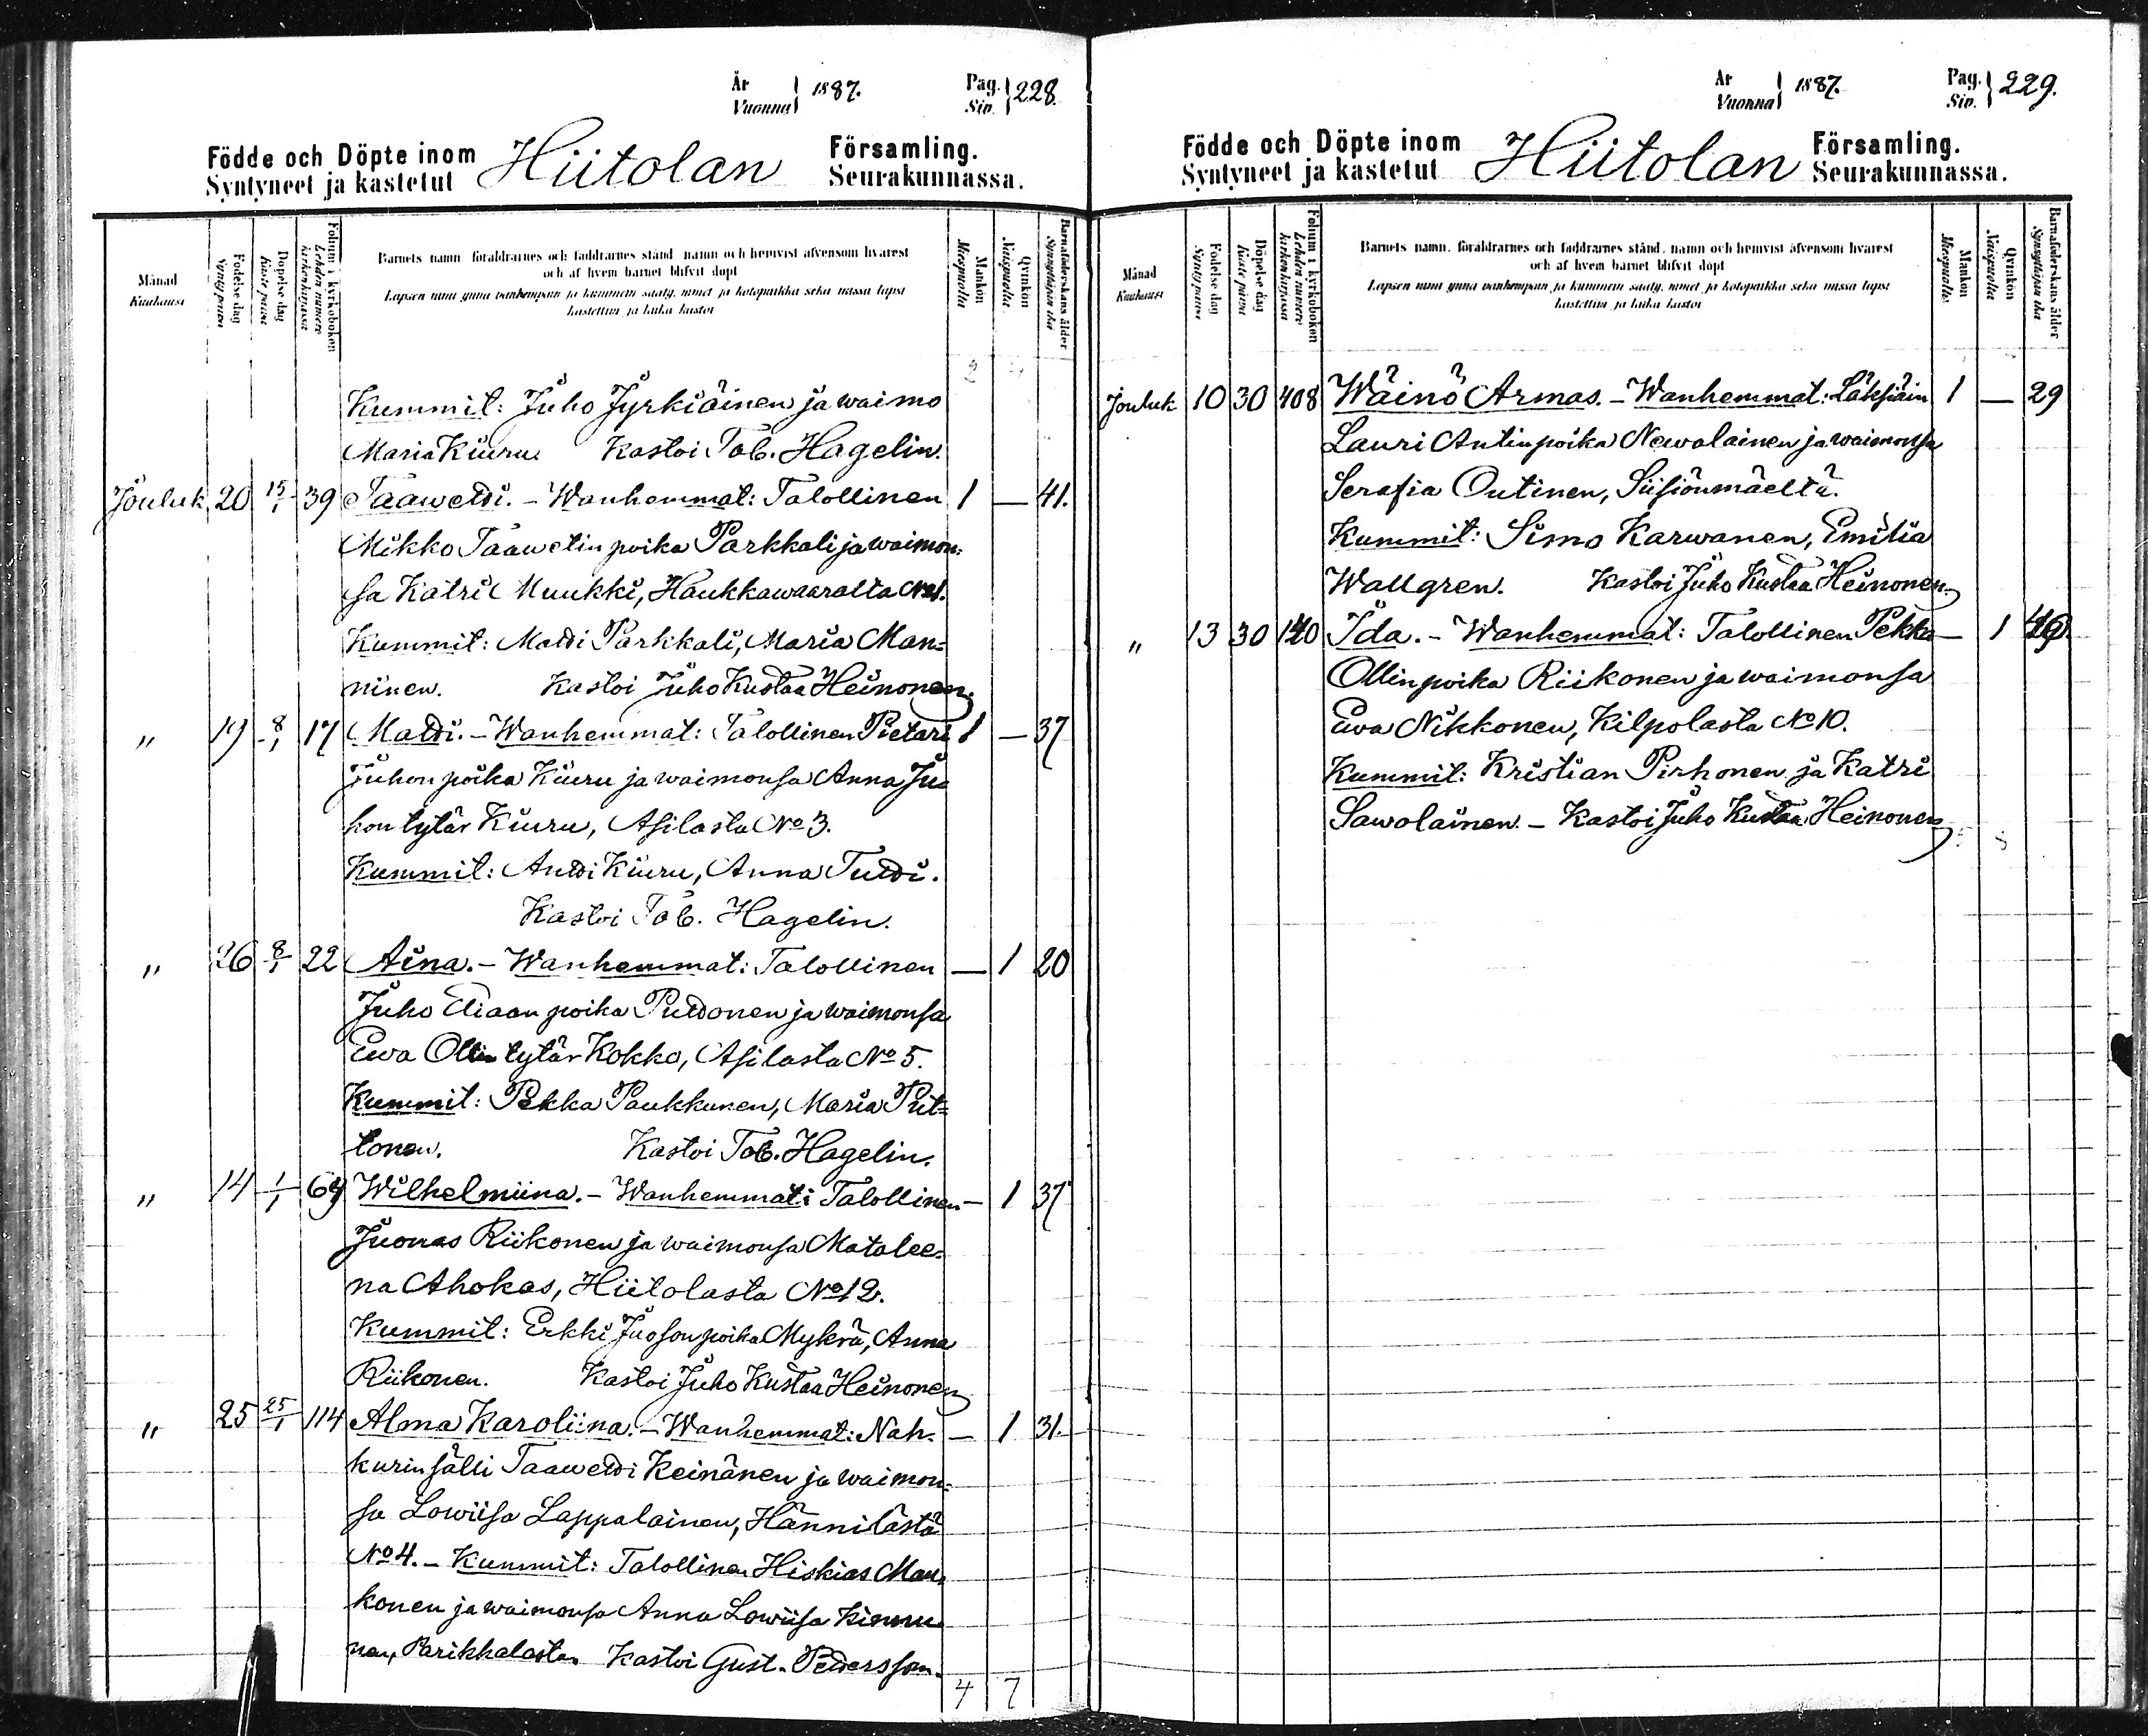 År
Vuonna 1887.
Pag.
Siv. 228.
Födde och Döpte inom
Syntyneet ja kastetut
Hiitolan
Församling.
Seurakunnassa.
Månad
Kuukausi
Födelse dag
Syntypäivä
Döpelse dag
Kaste päivä
Folium i kyrkoboken
Lehden numero kirkonkirjassa
Barnets namn föräldrarnes och faddrarnes stånd namn och hemvist äfvensom hvarest
och af hvem barnet blifvit döpt
Lapsen nimi ynnä vanhempain ja kummein sääty, nimet ja kotopaikka sekä missä lapsi
kastettiin ja kuka kastoi
Mankön
Miespuolia
Qvinkön
Naispuolia
Barnaföderskans ålder
Synnyttäjän ikä
Kummit: Juho Jyrkiäinen ja waimo
Maria Kiuru. Kastoi Tob. Hagelin.
Jouluk. 20 15/1 39 Taawetti. – Wanhemmat: Talollinen 1 — 41.
Mikko Taawetin poika Parkkali ja waimon-
sa Katri Muukki, Haukkawaaralta No 1.
Kummit: Matti Parkkali, Maria Man-
ninen. Kastoi Juho Kustaa Heinonen.
" 19 8/1 17 Matti. – Wanhemmat: Talollinen Pietari 1 — 37
Juhon poika Kiuru ja waimonsa Anna Ju-
hon tytär Kiuru, Asilasta No 3.
Kummit: Antti Kiuru, Anna Tutti.
Kastoi Tob. Hagelin.
" 26 8/1 22 Aina. – Wanhemmat: Talollinen — 1 20
Juho Eliaan poika Puttonen ja waimonsa
Ewa Ollin tytär Kokko, Asilasta No 5.
Kummit: Pekka Paukkunen, Maria Put-
tonen. Kastoi Tob. Hagelin.
" 14 1/1 69 Wilhelmiina. – Wanhemmat: Talollinen — 1 37
Juonas Riikonen ja waimonsa Matalee-
na Ahokas, Hiitolasta No 12.
Kummit: Erkki Juoson poika Mykrä, Anna
Riikonen. Kastoi Juho Kustaa Heinonen
" 25 25/1 114 Alma Karoliina. – Wanhemmat: Nah- — 1 31.
kurin sälli Taawetti Keinänen ja waimon-
sa Lowiisa Lappalainen, Hännilästä
No 4. – Kummit: Talollinen Hiskias Mau-
konen ja waimonsa Anna Lowiisa Kinnu-
nen, Parikkalasta. Kastoi Gust. Pettersson.
4 7
År
Vuonna 1887.
Pag.
Siv. 229.
Födde och Döpte inom
Syntyneet ja kastetut
Hiitolan
Församling.
Seurakunnassa.
Månad
Kuukausi
Födelse dag
Syntypäivä
Döpelse dag
Kaste päivä
Folium i kyrkoboken
Lehden numero kirkonkirjassa
Barnets namn, föräldrarnes och faddrarnes stånd, namn och hemvist äfvensom hvarest
och af hvem barnet blifvit döpt
Lapsen nimi ynnä vanhempain ja kummein sääty, nimet ja kotopaikka sekä missä lapsi
kastettiin ja kuka kastoi
Mankön
Miespuolia
Qvinkön
Naispuolia
Barnaföderskans ålder
Synnyttäjän ikä
Jouluk 10 30 408 Wäinö Armas. – Wanhemmat: Läksiäin 1 — 29
Lauri Antinpoika Newalainen ja waimonsa
Serafia Outinen, Siisiönmäeltä.
Kummit: Simo Karwanen, Emilia
Wallgren. Kastoi Juho Kustaa Heinonen.
" 13 30 140 Ida. – Wanhemmat: Talollinen Pekka — 1
Ollin poika Riikonen ja waimonsa
Ewa Nikkonen, Kilpolasta No 10.
Kummit: Kristian Pirhonen ja Katri
Sawolainen. – Kastoi Juho Kustaa Heinonen